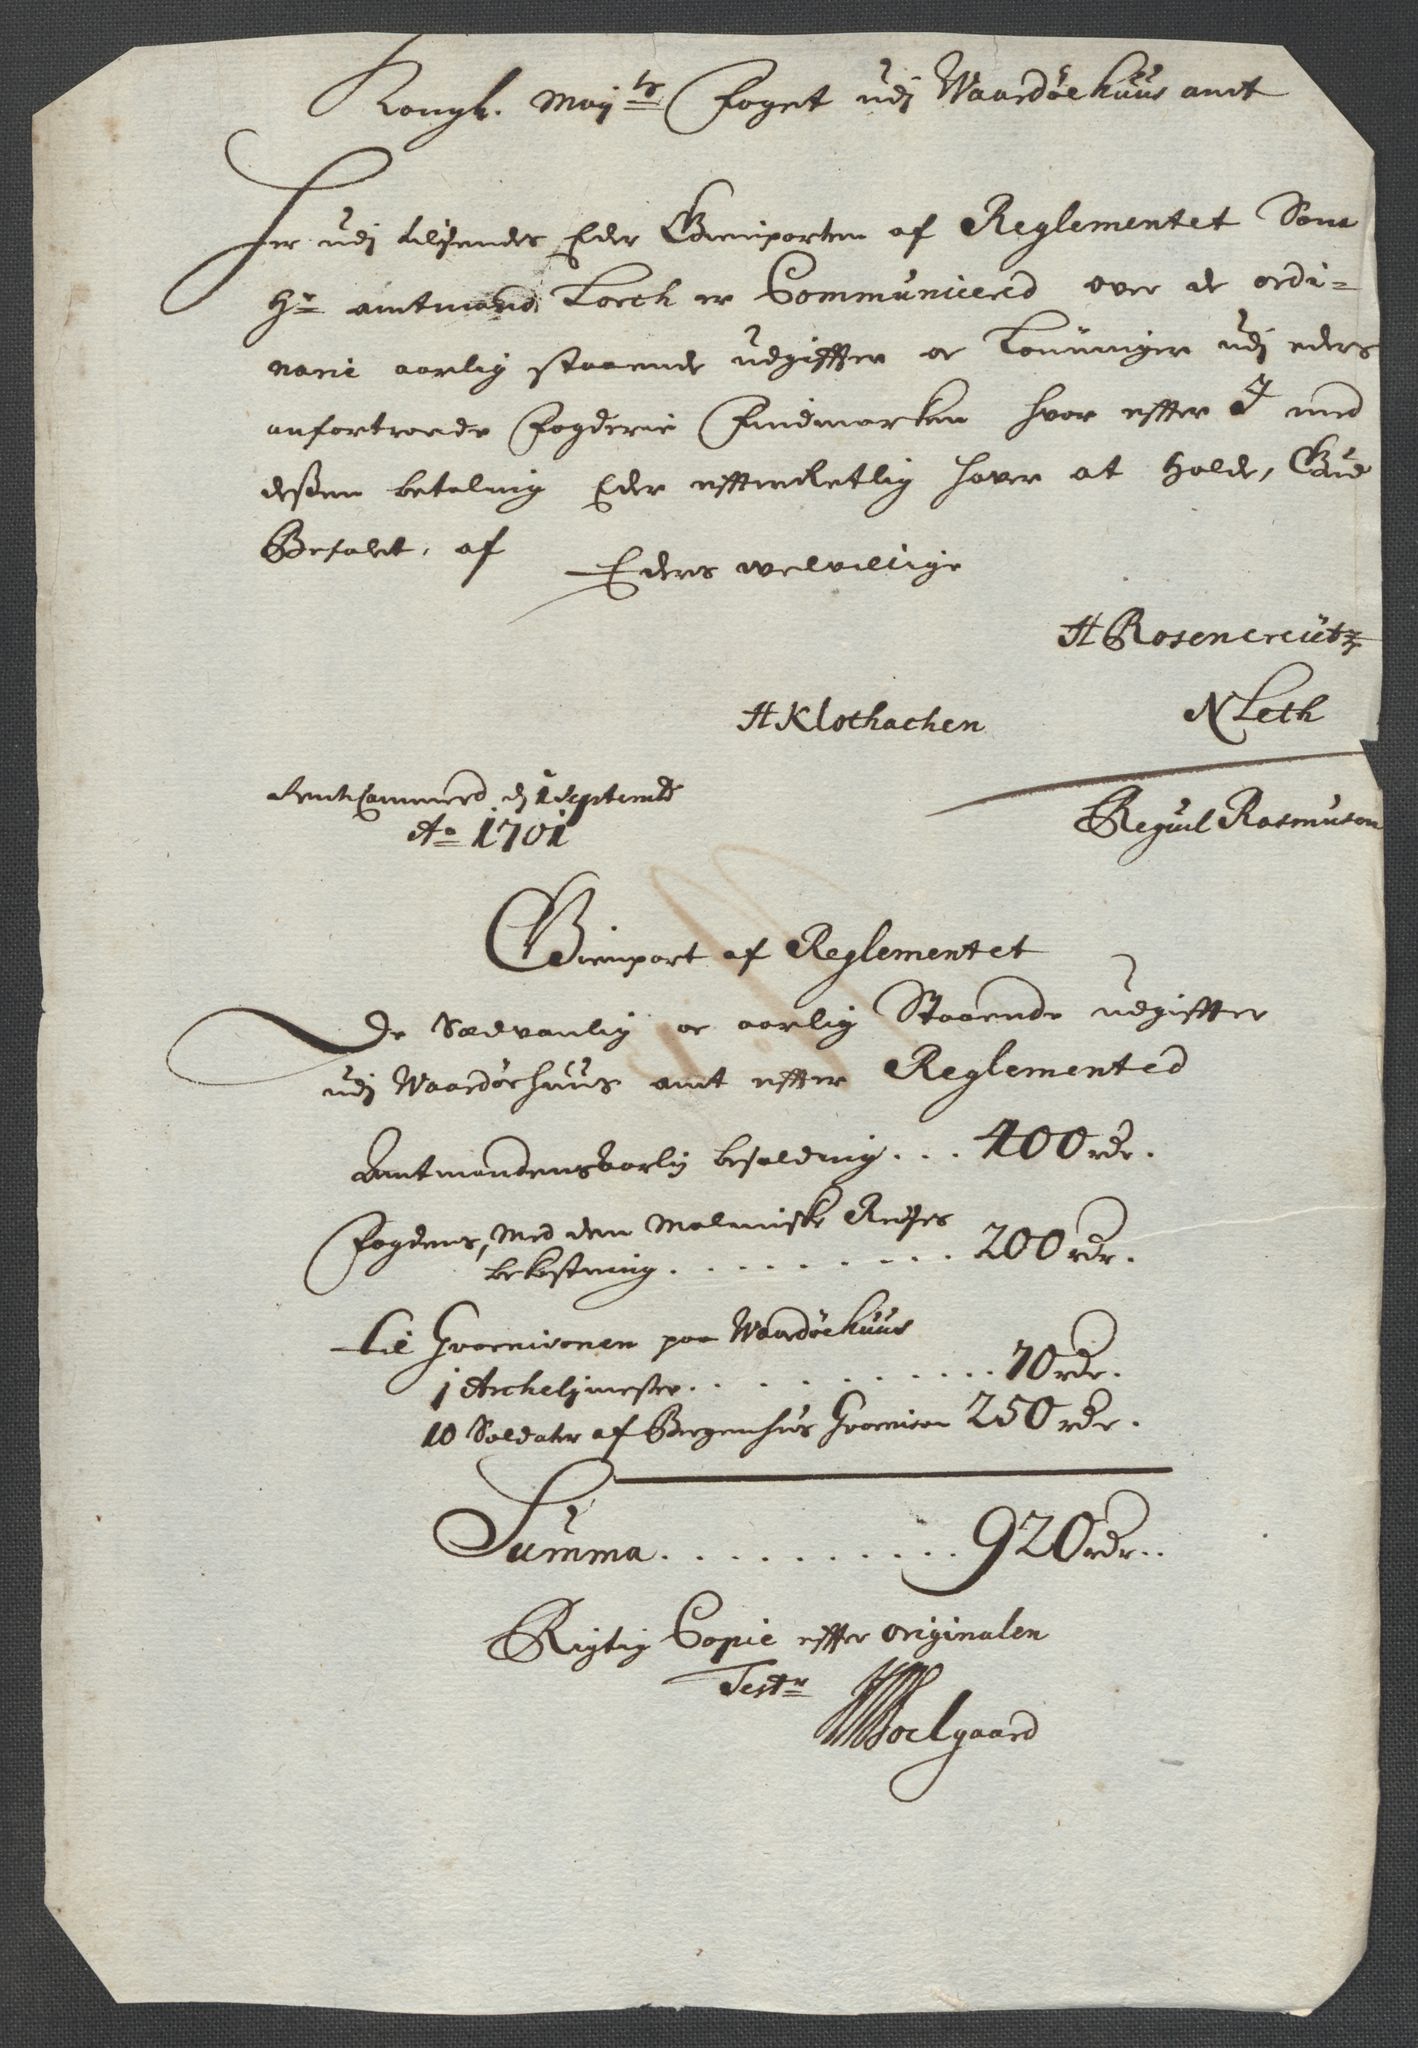 Kongl. May:ts Foget udj Waardøehuus amt
Her udj tilsendes Eder Gienparten af Reglementet Som
Hr amtmand Lorch er Communicerid over de ordi-
narie aarlig staaende udgiffter oc Lønninger udj eders
anfortroede Fogderie Findmarken hvor effter I med
dessen betaling Eder efterretlig haver at holde, Gud
Befalet, af Eders velvillige
H Rosencreütz
H Klothachen N Leth
Rentecammered dj 1 Septembr
Ao 1701
Regual Rasmuson
Gienpart af Reglementet
De Sædvanlig oc aarlig Staaende udgiffter
udj Waardøehuus amt effter Reglemented
Amtmandens aarlig besolding . . . 400 rdr.
Fogdens, med den Malmiske Reises
bekostning . . . . . . . . . 200 rdr.
til Gvarnisonen paa Waardøehuus
1 Archelimester . . . . . . . . . . . 70 rdr.
10 Soldater af Bergenhus Gvarnison 250 rdr.
Summa . . . . . . . . . . 920 rdr..
Rigtig Copie effter originalen
Testr
Soelgaard